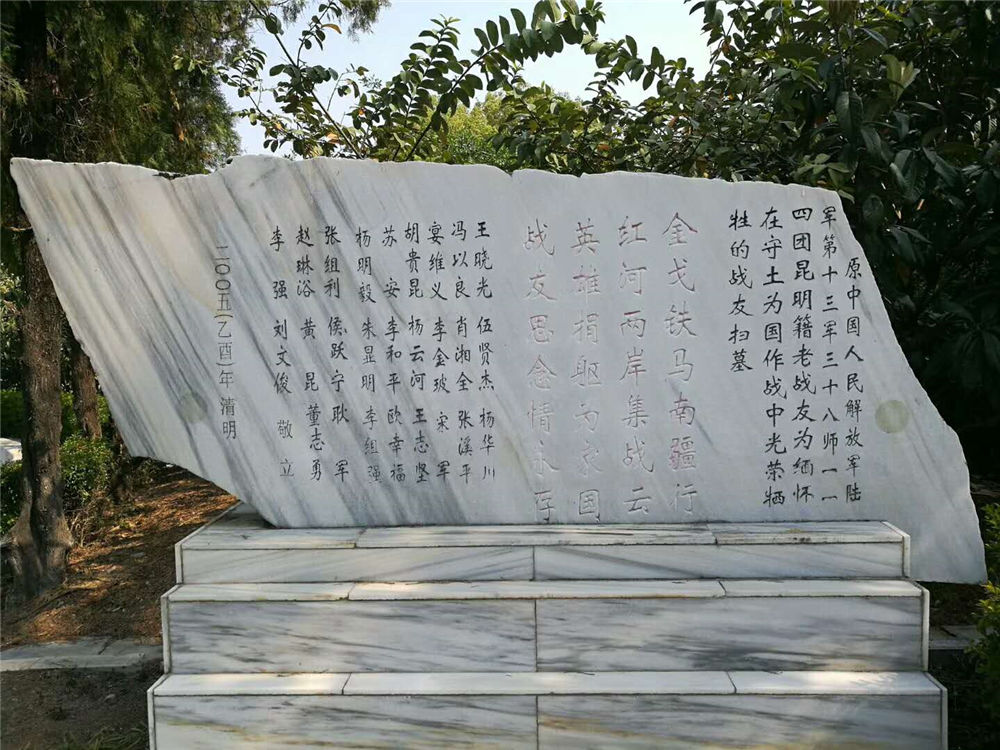 原中国人民解放军陆
军第十三军三十八师一一
四团昆明籍老战友为缅怀
在守土为国作战中光荣牺
牲的战友扫墓
金戈铁马南疆行
红河两岸集战云
英雄捐躯为家国
战友思念情永存
王晓光 伍贤杰 杨华川
冯以良 肖湘全 张溪平
宴维义 李金玻 宋军
胡贵昆 杨云河 王志坚
苏安 李和平 欧幸福
杨明毅 朱显明 李组强
张组利 侯跃宁 耿军
赵琳浴 黄昆 董志勇
李强 刘文俊 敬立
二〇〇五(乙酉)年 清明